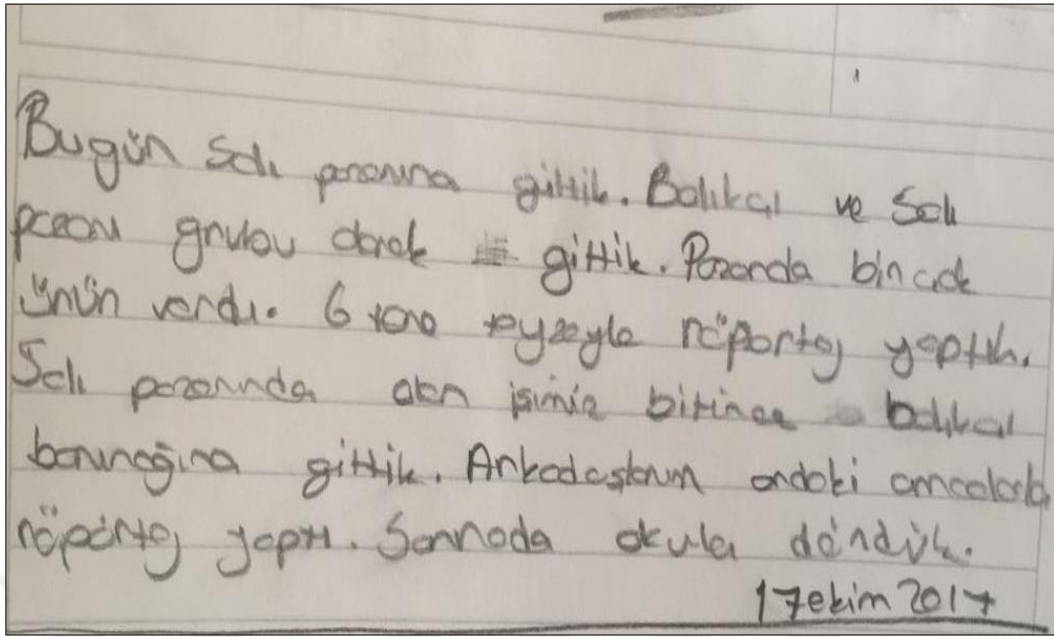 Bugün Salı pazarına gittik. Balıkçı ve Salı
pazarı grubu olarak gittik. Pazarda birçok
ürün vardı. 6 tane teyzeyle röportaj yaptık.
Salı pazarında olan işimiz bitince balıkçı
barınağına gittik. Arkadaşlarım ordaki amcalarla
röportaj yaptı. Sonrada okula döndük.
17 ekim 2017